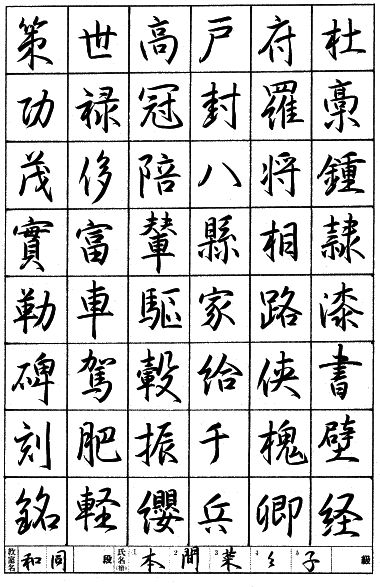 杜稾鍾隷漆書壁経
府羅将相路侠槐卿
戸封八縣家給千兵
高冠陪輦驅轂振纓
世禄侈富車駕肥軽
策功茂實勒碑刻銘
教室名 和同 段 氏名(印) 1本 2間 3菜 4々 5子 級